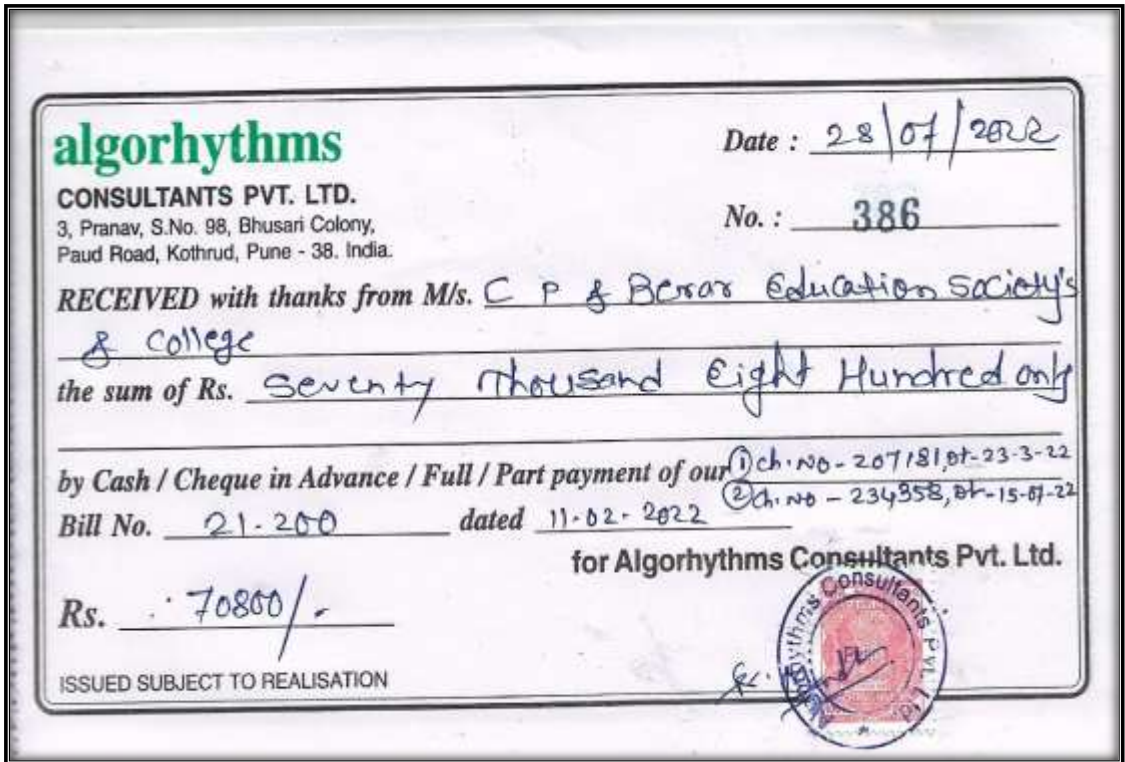 algorhythms
CONSULTANTS PVT. LTD.
3, Pranav, S.No. 98, Bhusari Colony,
Paud Road, Kothrud, Pune - 38. India.
Date : 28/07/2022
No. : 386
RECEIVED with thanks from M/s. C P & Berar Education Society's
& College
the sum of Rs. Seventy Thousand Eight Hundred only
by Cash / Cheque in Advance / Full / Part payment of our ① ch.No - 207181, dt-23-3-22
② ch.No - 234358, dt-15-07-22
Bill No. 21-200 dated 11-02-2022
for Algorhythms Consultants Pvt. Ltd.
Rs. 70800/-
ISSUED SUBJECT TO REALISATION
Algorhythms Consultants Pvt. Ltd.